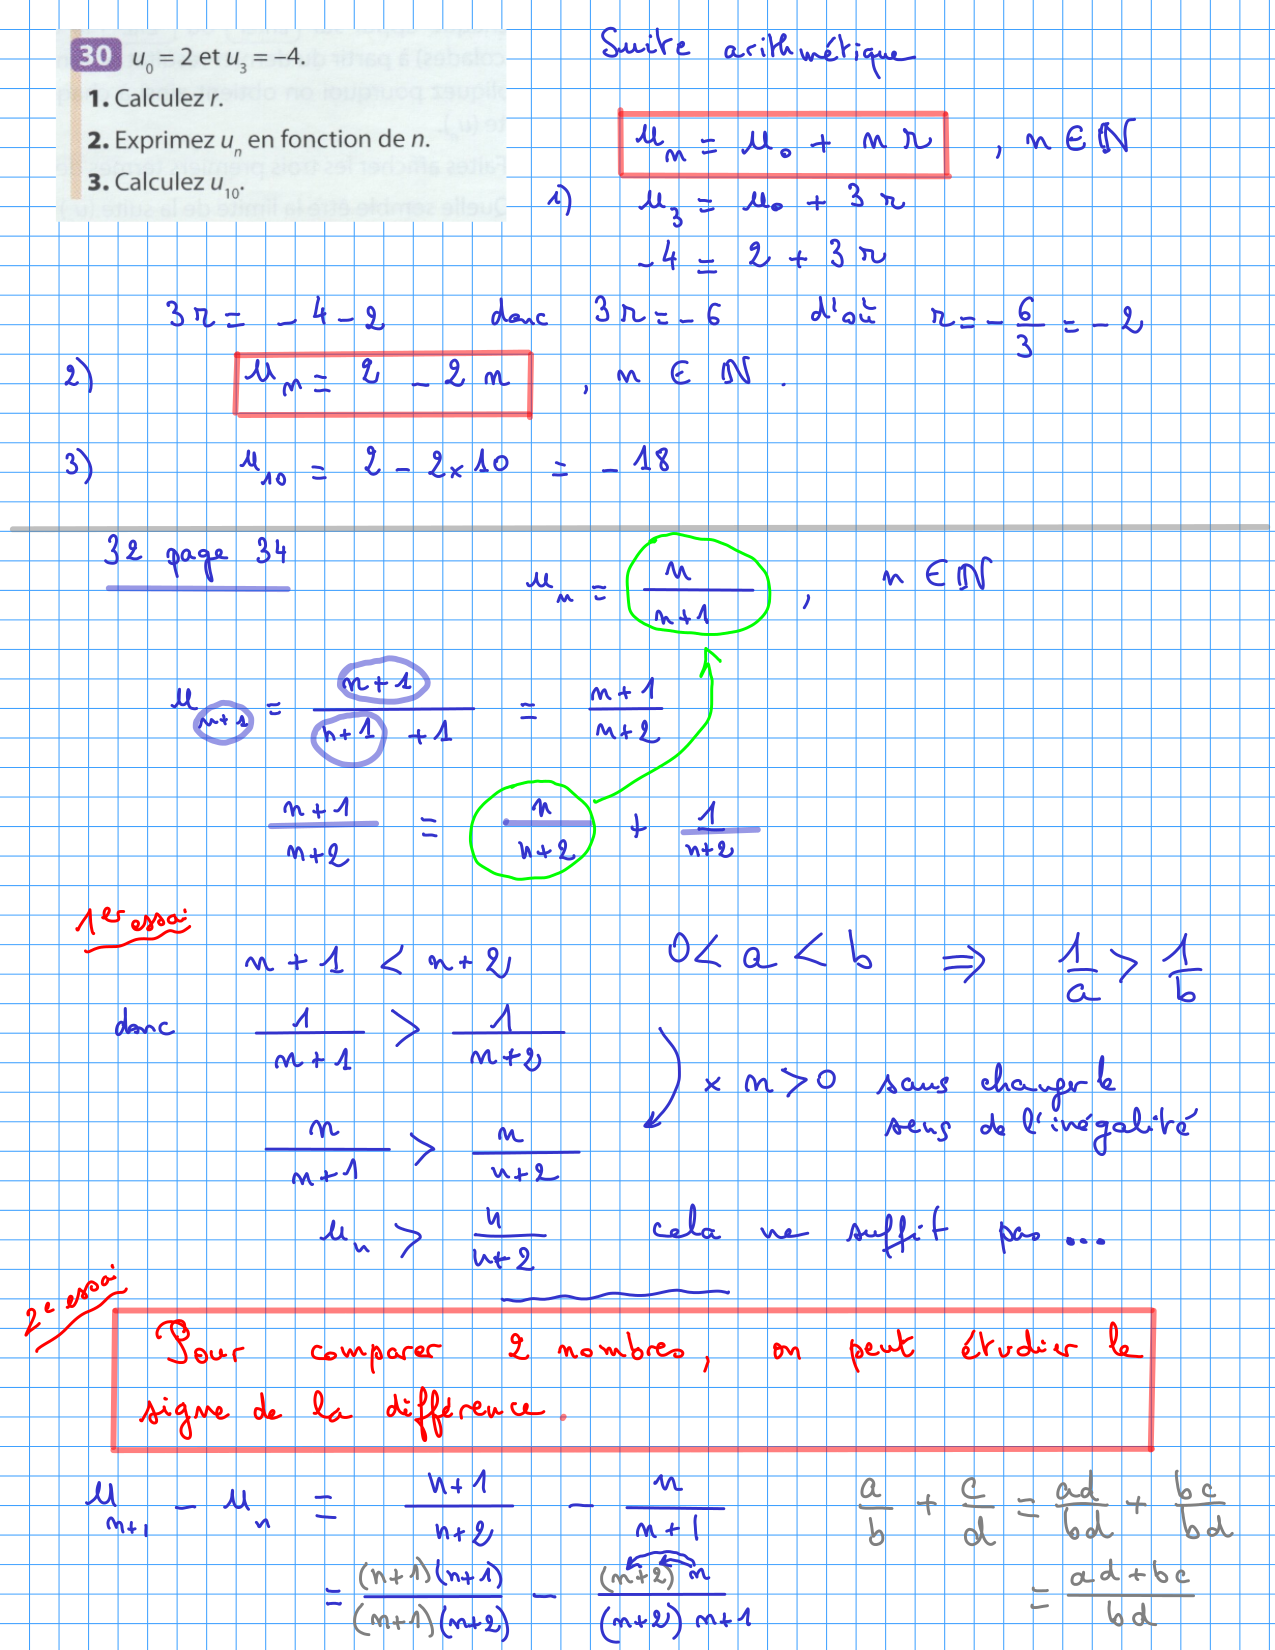 30 u₀ = 2 et u₃ = –4.
1. Calculez r.
2. Exprimez uₙ en fonction de n.
3. Calculez u₁₀.
Suite arithmétique
uₙ = u₀ + n r , n ∈ ℕ
1) u₃ = u₀ + 3 r
-4 = 2 + 3 r
3 r = - 4 - 2 donc 3 r = - 6 d'où r = - 6/3 = - 2
2) uₙ = 2 - 2 n , n ∈ ℕ .
3) u₁₀ = 2 - 2 × 10 = - 18
32 page 34
uₙ = n/(n+1) , n ∈ ℕ
uₙ₊₁ = (n+1)/(n+1 +1) = (n+1)/(n+2)
(n+1)/(n+2) = n/(n+2) + 1/(n+2)
1er essai
n + 1 < n+2 0 < a < b ⇒ 1/a > 1/b
donc 1/(n+1) > 1/(n+2)
× n > 0 sans changer le
sens de l'inégalité
n/(n+1) > n/(n+2)
uₙ > n/(n+2) cela ne suffit pas ...
2e essai
Pour comparer 2 nombres, on peut étudier le
signe de la différence.
uₙ₊₁ - uₙ = (n+1)/(n+2) - n/(n+1) a/b + c/d = ad/bd + bc/bd
= (n+1)(n+1)/(n+1)(n+2) - (n+2) n/(n+2) n+1 = (ad+bc)/bd